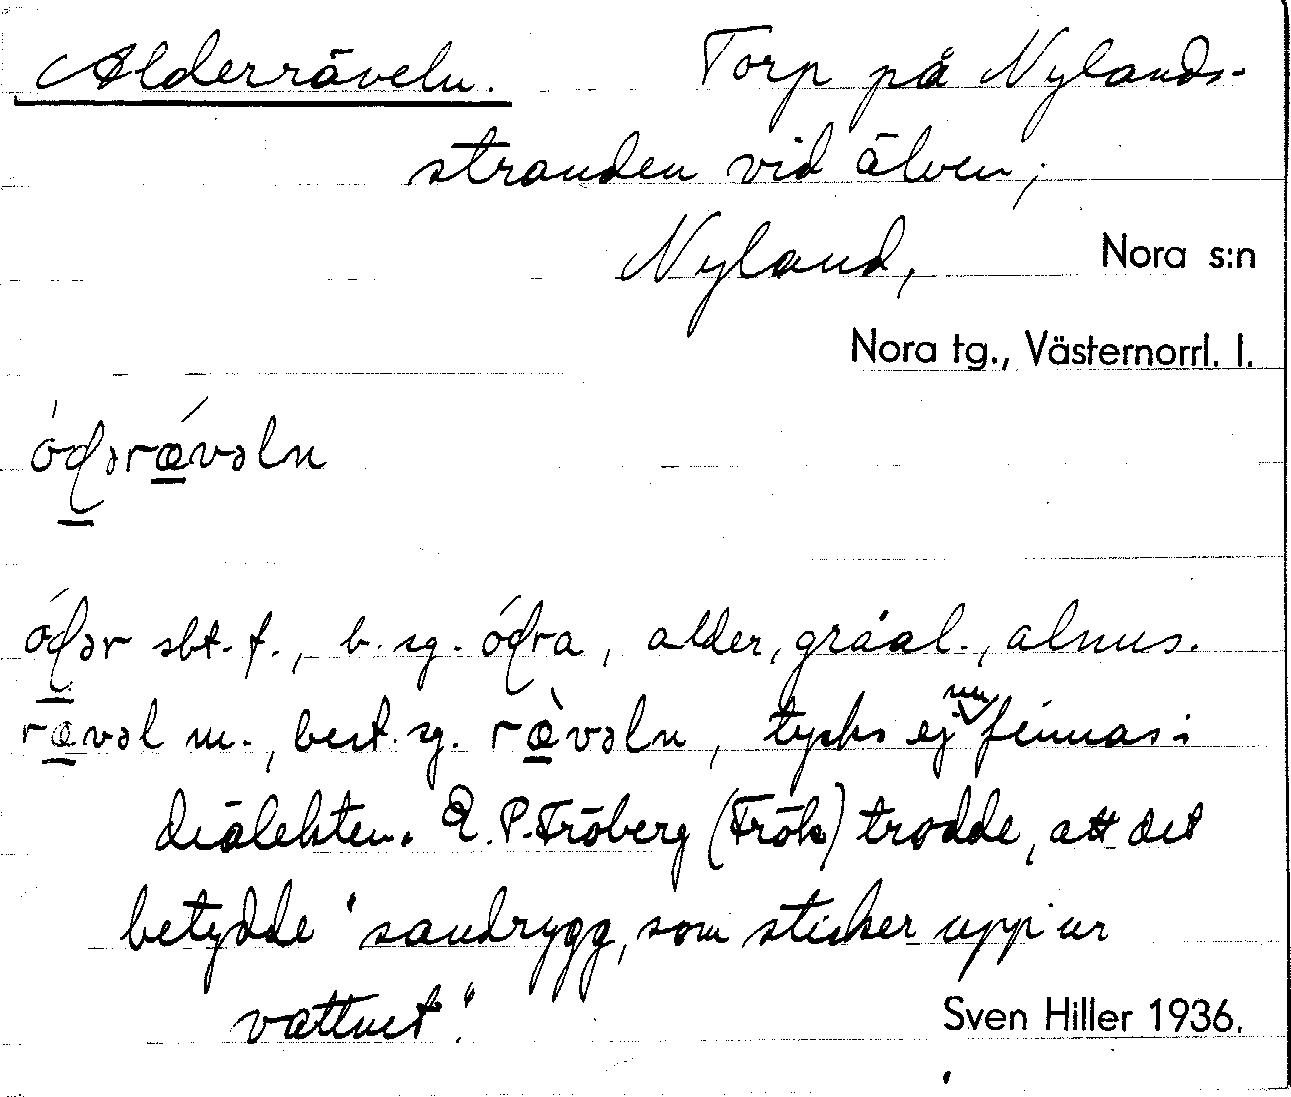 Alderräveln. Torp på Nylands-
stranden vid älven;
Nyland, Nora s:n
Nora tg., Västernorrl. l.
óɖərævəln
óɖər sbt. f., b. sg. óɖra, alder, gråal., alnus.
rævəl m., best. sg. rævəln, tycks ej nu finnas i
dialekten. E. P. Fröberg (Frök) trodde, att det
betydde "sandrygg, som sticker upp ur
vattnet".
Sven Hiller 1936.